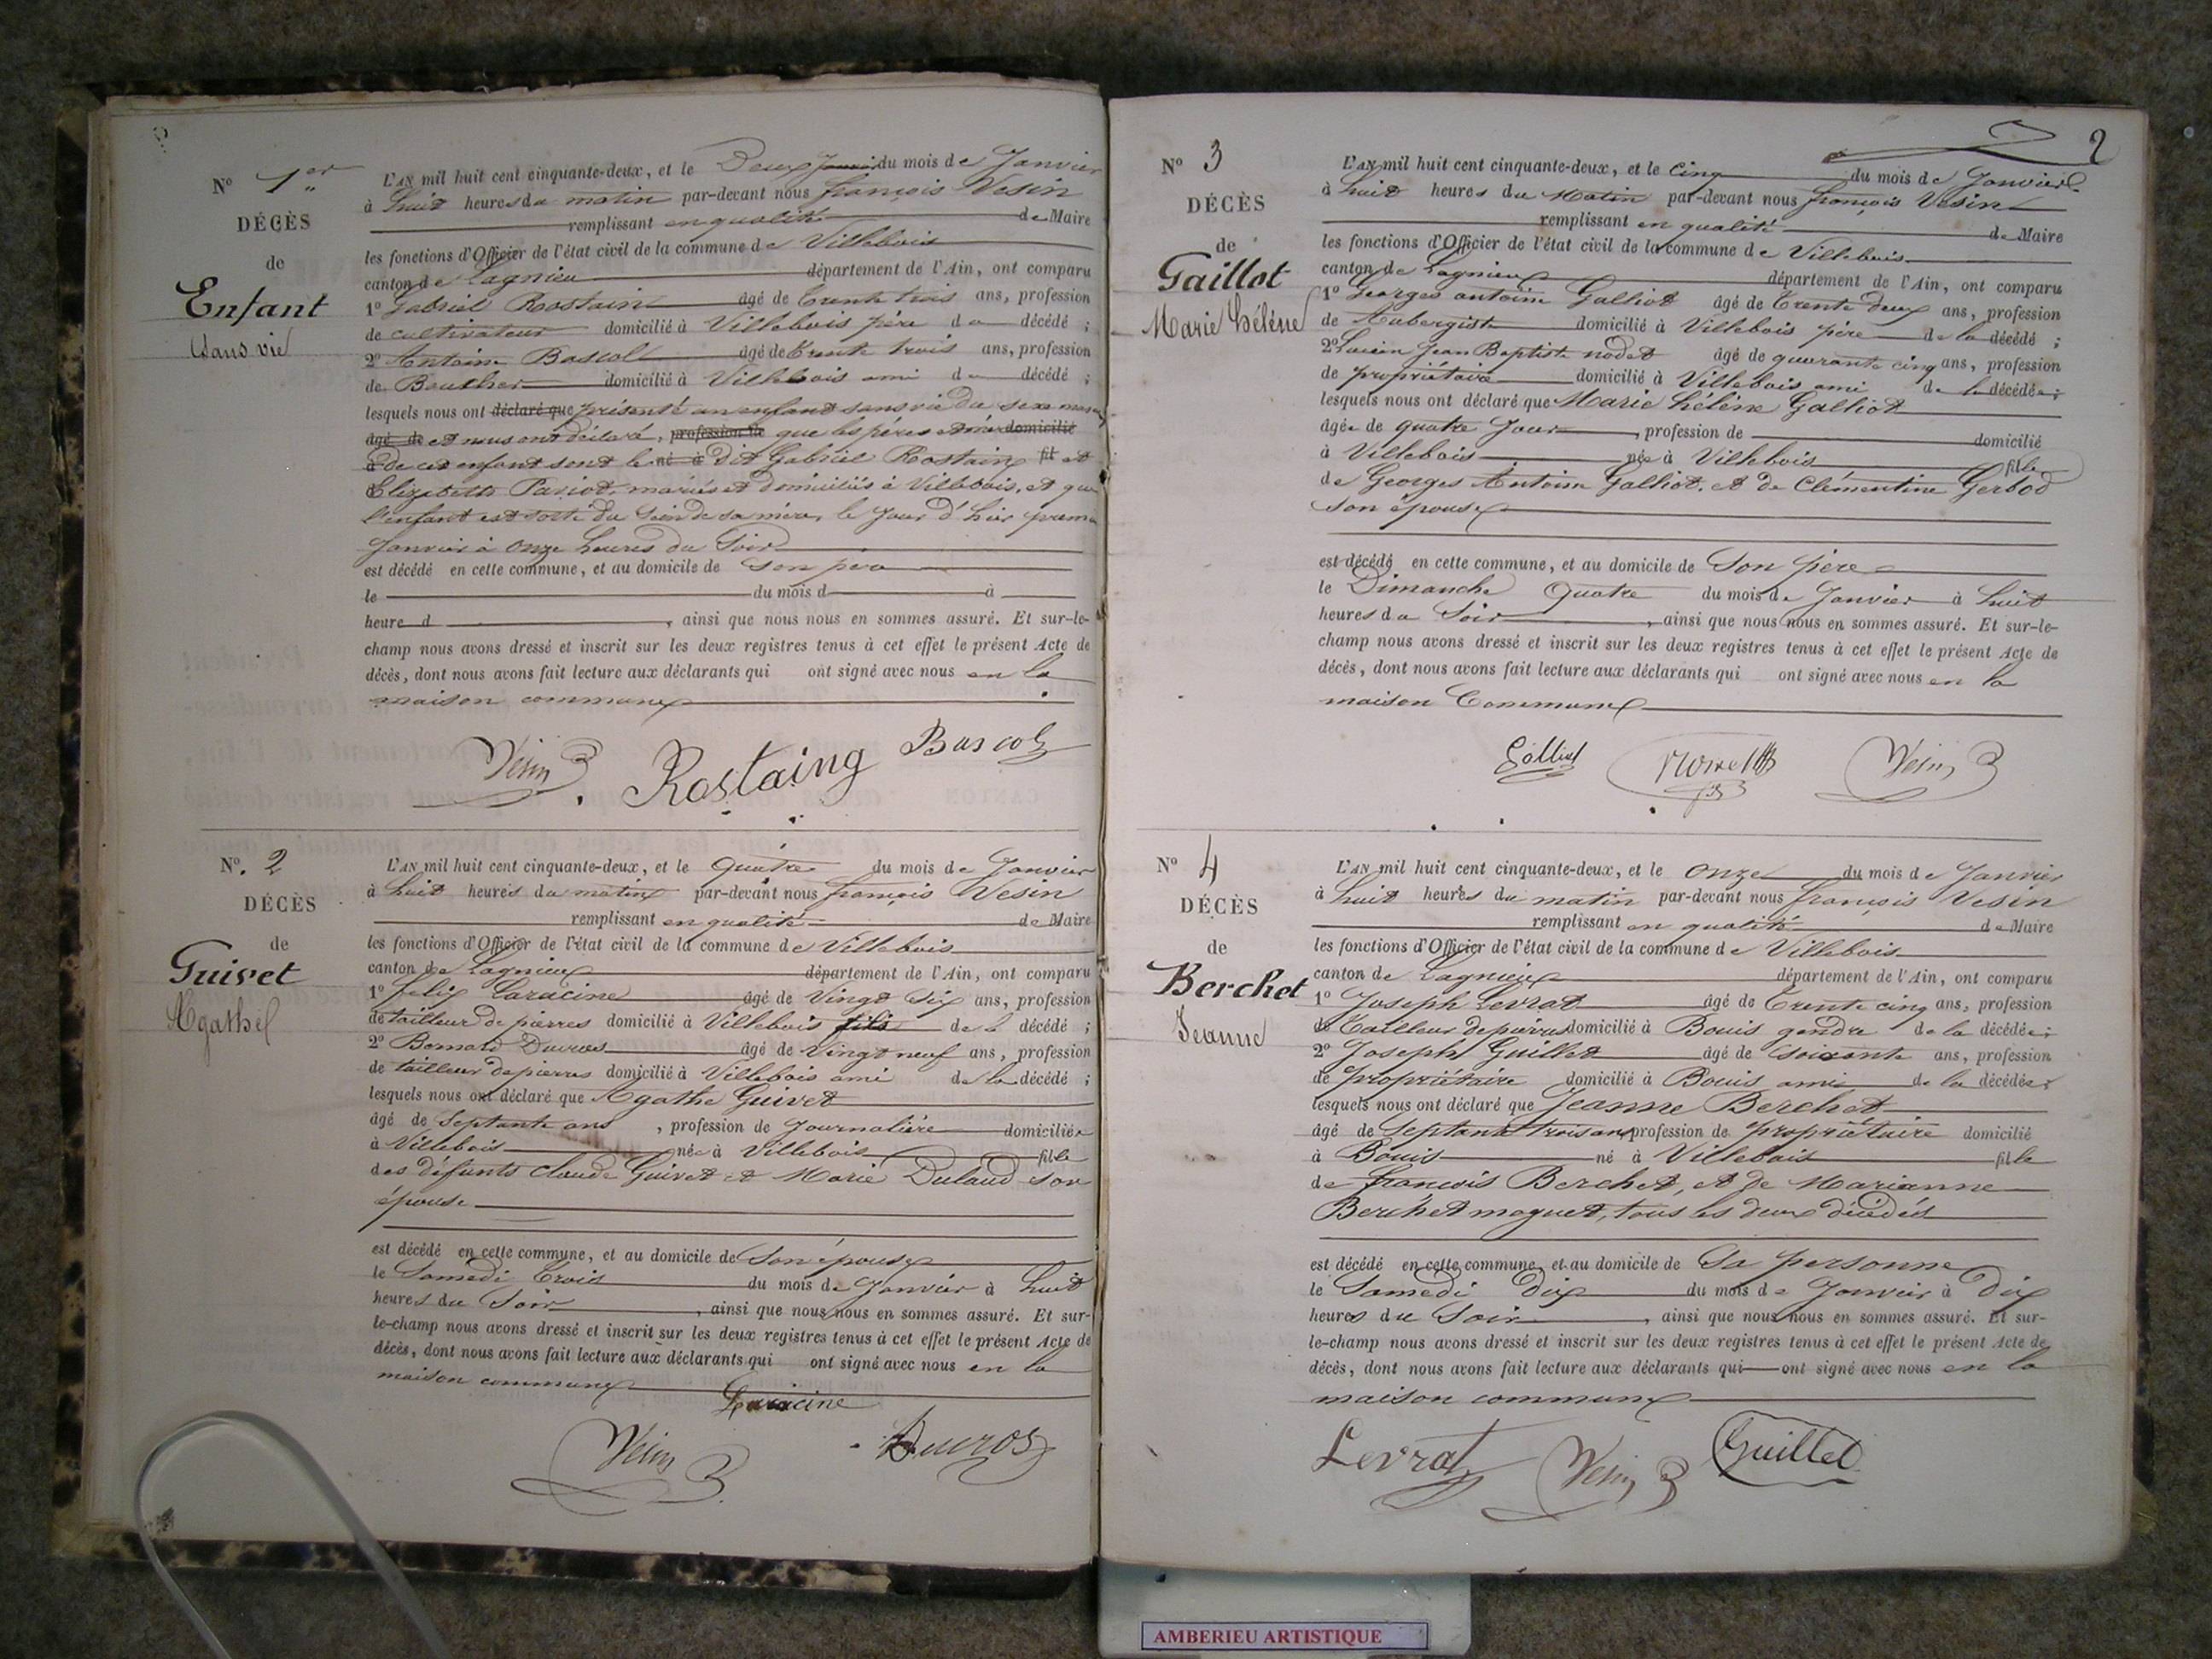 N° 1er
DÉCÈS
de
Enfant
Sans vie
L'AN mil huit cent cinquante-deux, et le Deux Janvier du mois de Janvier
à huit heures du matin par-devant nous françois Vesin
remplissant en qualité de Maire
les fonctions d'Officier de l'état civil de la commune de Villebois
canton de Lagnieu département de l'Ain, ont comparu
1° Gabriel Rostain âgé de trente trois ans, profession
de cultivateur domicilié à Villebois père d décédé ;
2° Antoine Bascol âgé de trente trois ans, profession
de Boucher domicilié à Villebois ami d décédé ;
lesquels nous ont déclaré que présenté un enfant sans vie du sexe
âgé de et nous ont déclaré, profession de que les père et mère domicilié
à de cet enfant sont le né à dit Gabriel Rostaing fil et
Elizabeth Pariot, mariés et domiciliés à Villebois, et que
l'enfant est sorti du sein de sa mère, le jour d'hier
Janvier à onze heures du soir
est décédé en cette commune, et au domicile de son père
le du mois d à
heure d , ainsi que nous nous en sommes assuré. Et sur-le-
champ nous avons dressé et inscrit sur les deux registres tenus à cet effet le présent Acte de
décès, dont nous avons fait lecture aux déclarants qui ont signé avec nous en la
maison commune
Vesin Rostaing Bascol
N°. 2
DÉCÈS
de
Guivet
Agathe
L'AN mil huit cent cinquante-deux, et le quatre du mois de Janvier
à huit heures du matin par-devant nous françois Vesin
remplissant en qualité de Maire
les fonctions d'Officier de l'état civil de la commune de Villebois
canton de Lagnieu département de l'Ain, ont comparu
1° felix Laracine âgé de vingt six ans, profession
de tailleur de pierres domicilié à Villebois fils de l décédé ;
2° Bernard Ducros âgé de vingt neuf ans, profession
de tailleur de pierres domicilié à Villebois ami de la décédé ;
lesquels nous ont déclaré que Agathe Guivet
âgé de Septante ans , profession de Journalière domiciliée
à Villebois née à Villebois fille
des défunts Claude Guivet et Marie Dulaud son
épouse
est décédé en cette commune, et au domicile de son épouse
le Samedi trois du mois de Janvier à huit
heures du Soir , ainsi que nous nous en sommes assuré. Et sur-
le-champ nous avons dressé et inscrit sur les deux registres tenus à cet effet le présent Acte de
décès, dont nous avons fait lecture aux déclarants qui ont signé avec nous en la
maison commune
Laracine
Vesin Ducros
2
N° 3
DÉCÈS
de
Gaillot
Marie hélène
L'AN mil huit cent cinquante-deux, et le cinq du mois de Janvier
à huit heures du Matin par-devant nous françois Vesin
remplissant en qualité de Maire
les fonctions d'Officier de l'état civil de la commune de Villebois
canton de Lagnieu département de l'Ain, ont comparu
1° Georges antoine Galliot âgé de trente deux ans, profession
de Aubergiste domicilié à Villebois père de la décédé ;
2° Lucien Jean Baptiste nodet âgé de quarante cinq ans, profession
de propriétaire domicilié à Villebois ami de la décédée ;
lesquels nous ont déclaré que Marie hélène Galliot
âgée de quatre Jour , profession de domicilié
à Villebois née à Villebois fille
de Georges Antoine Galliot, et de Clémentine Gerbod
son épouse
est décédé en cette commune, et au domicile de Son père
le Dimanche Quatre du mois de Janvier à huit
heures du Soir , ainsi que nous nous en sommes assuré. Et sur-le-
champ nous avons dressé et inscrit sur les deux registres tenus à cet effet le présent Acte de
décès, dont nous avons fait lecture aux déclarants qui ont signé avec nous en la
maison Commune
Galliot Vesin
N° 4
DÉCÈS
de
Berchet
Jeanne
L'AN mil huit cent cinquante-deux, et le onze du mois de Janvier
à huit heures du matin par-devant nous françois Vesin
remplissant en qualité de Maire
les fonctions d'Officier de l'état civil de la commune de Villebois
canton de Lagnieu département de l'Ain, ont comparu
1° Joseph Levrat âgé de trente cinq ans, profession
de tailleur de pierres domicilié à Bouis gendre de la décédée ;
2° Joseph Guillet âgé de soixante ans, profession
de propriétaire domicilié à Bouis ami de la décédée ;
lesquels nous ont déclaré que Jeanne Berchet
âgé de Septante trois ans profession de propriétaire domicilié
à Bouis né à Villebois fille
de françois Berchet, et de Marianne
Berchet maguet, tous les deux décédés
est décédé en cette commune, et au domicile de Sa personne
le Samedi Dix du mois de Janvier à Dix
heures du Soir , ainsi que nous nous en sommes assuré. Et sur-
le-champ nous avons dressé et inscrit sur les deux registres tenus à cet effet le présent Acte de
décès, dont nous avons fait lecture aux déclarants qui ont signé avec nous en la
maison commune
Levrat Vesin Guillet
AMBERIEU ARTISTIQUE